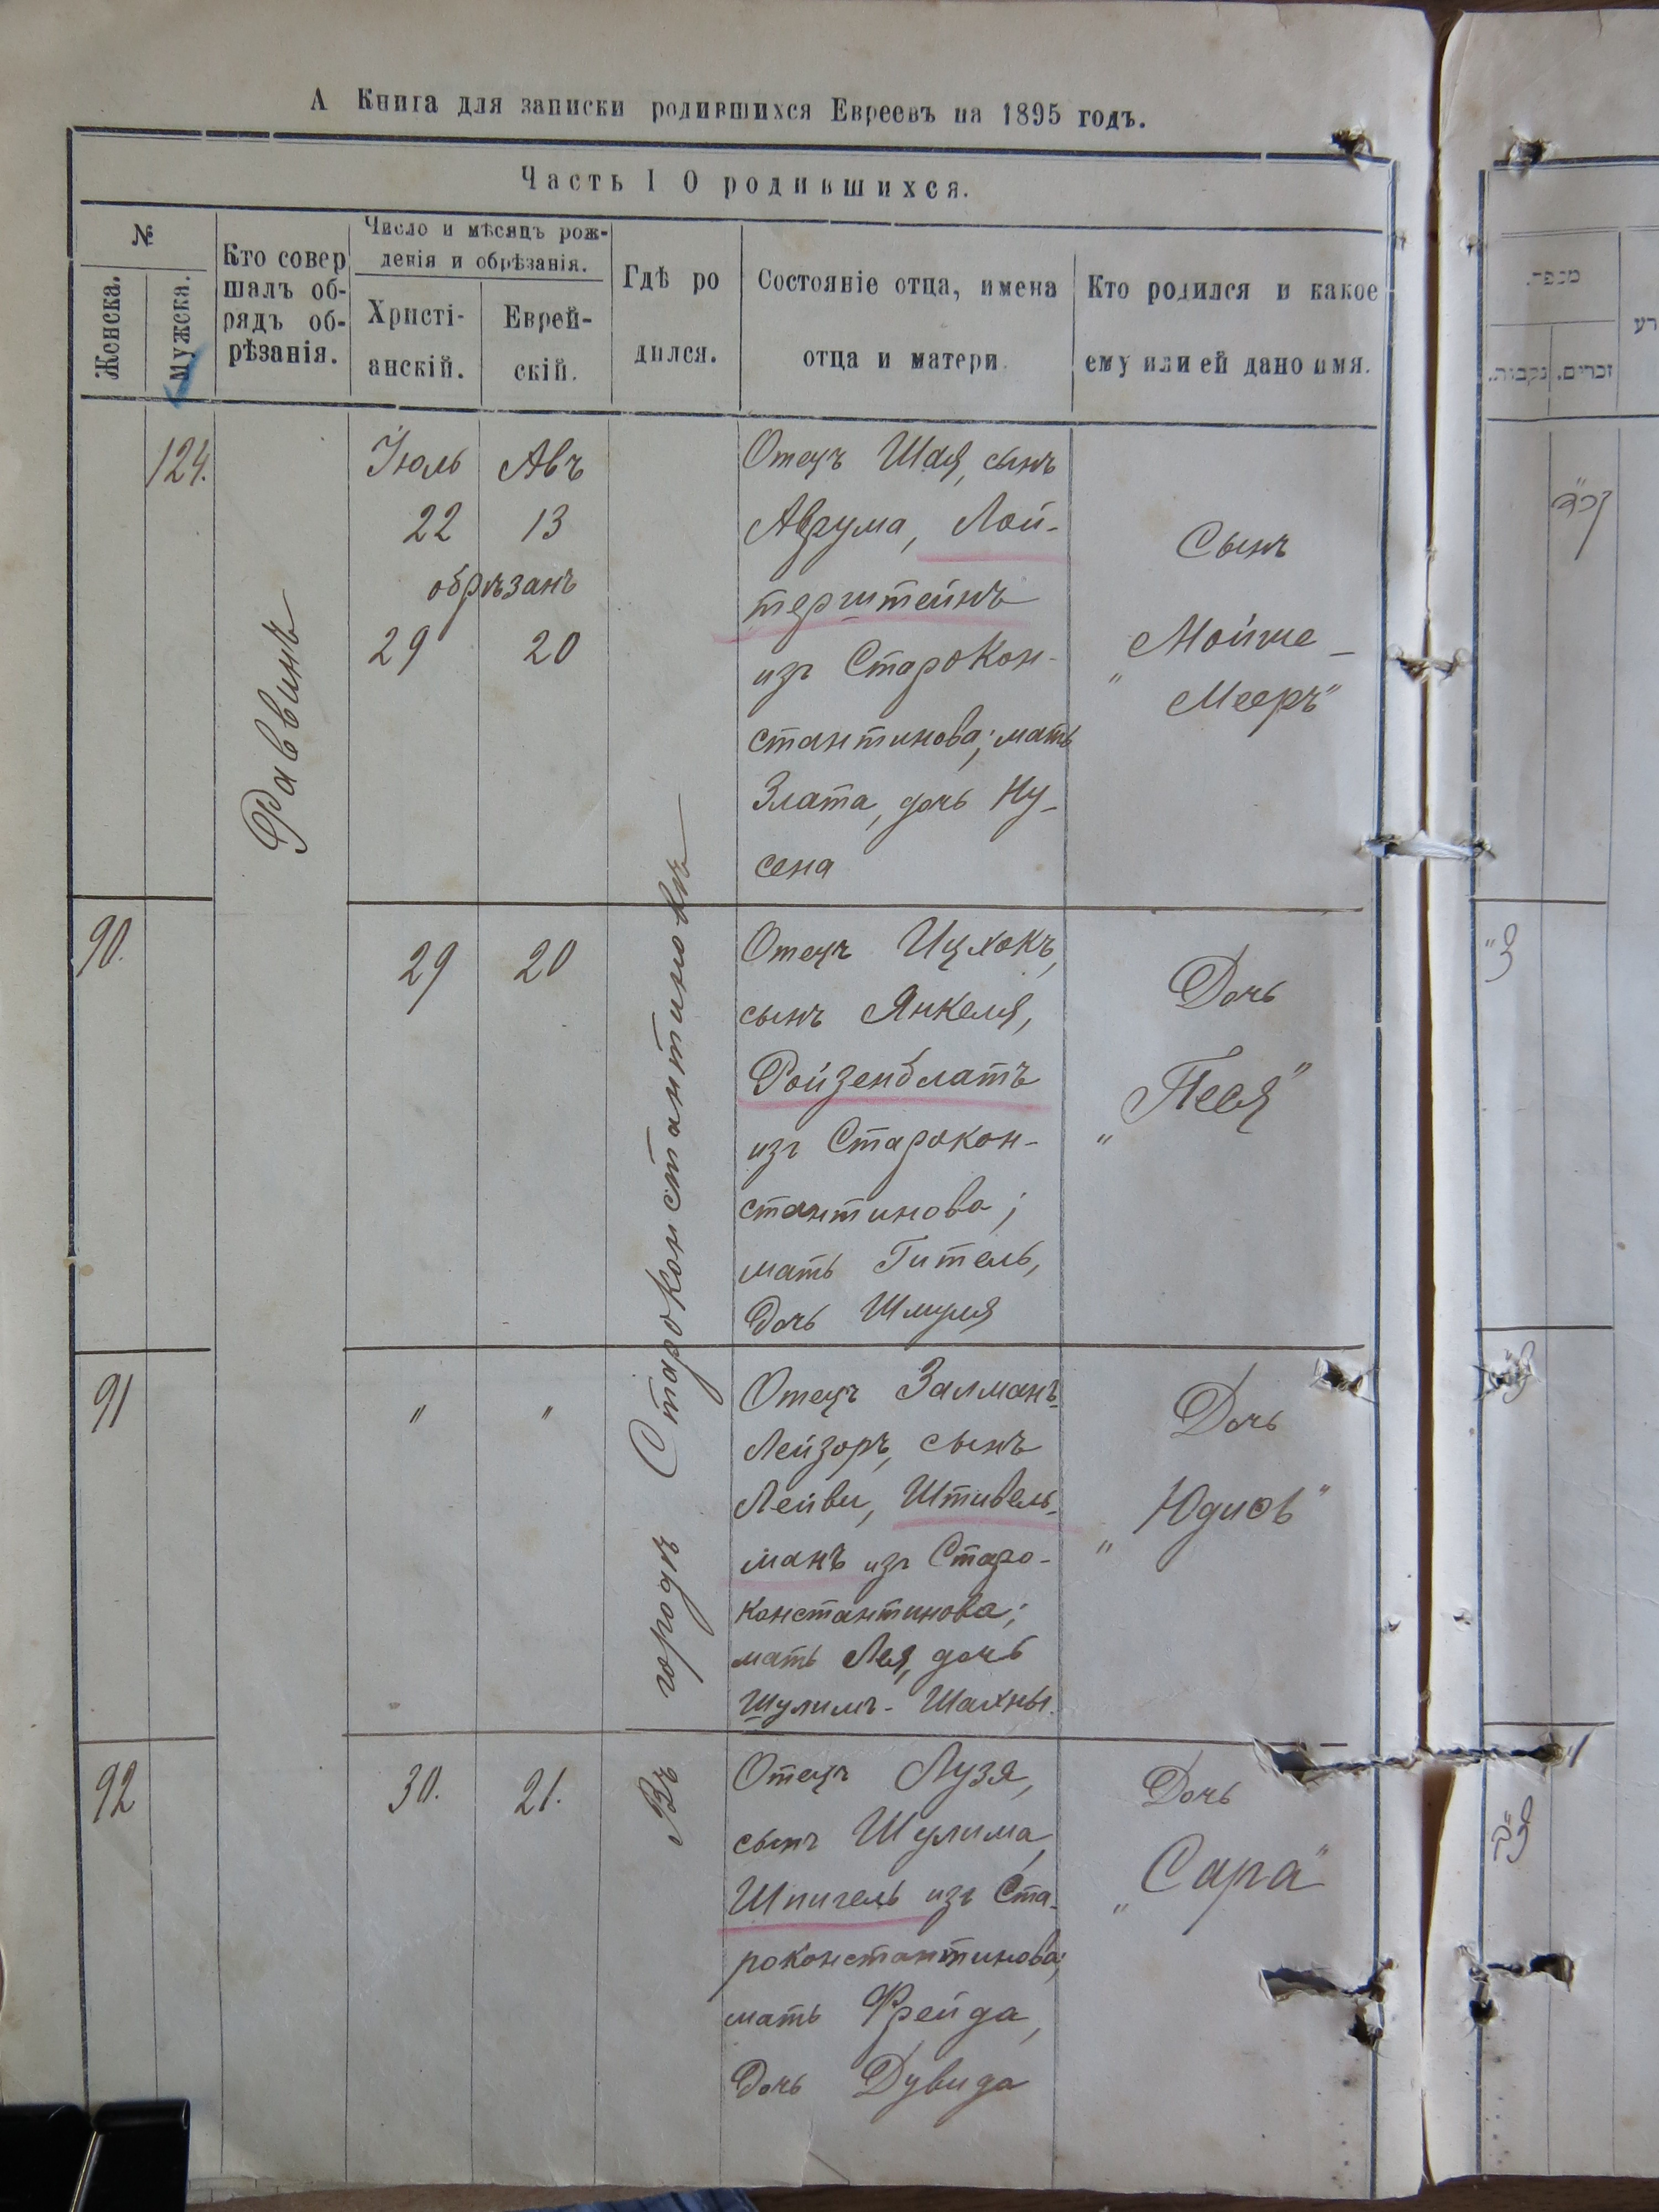 А Книга для записки родившихся Евреевъ на 1895 годъ.
Часть I О родившихся.
№
Женска.
Мужска.
Кто совер
шалъ об-
рядъ об-
рѣзанія.
Число и мѣсяцъ рож-
денія и обрѣзанія.
Христі-
анскій.
Еврей-
скій.
Гдѣ ро
дился.
Состояніе отца, имена
отца и матери.
Кто родился и какое
ему или ей дано имя.
124.
Раввинъ
Іюль Авъ
22 13
обрѣзанъ
29 20
Въ городѣ Староконстантиновѣ
Отецъ Шая, сынъ
Аврума, Лой-
терштейнъ
изъ Старокон-
стантинова; мать
Злата, дочь Ну-
сена
Сынъ
"Мойше-
Мееръ"
90.
29 20
Отецъ Ицхокъ,
сынъ Янкеля,
Ройзенблатъ
изъ Старокон-
стантинова;
мать Гитель,
дочь Шмуля
Дочь
"Песя"
91
" "
Отецъ Залманъ-
Лейзоръ, сынъ
Лейви, Штивель-
манъ изъ Старо-
константинова;
мать Лея, дочь
Шулимъ-Шахны.
Дочь
"Юдисъ"
92
30. 21.
Отецъ Лузя,
сынъ Шулима,
Шпигель изъ Ста-
роконстантинова;
мать Фрейда,
дочь Дувида
Дочь
"Сара"
מספר.
נקבות.
זכרים.